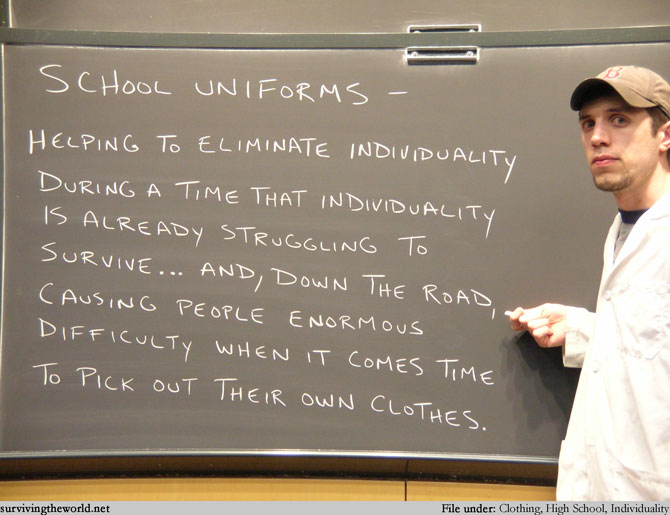 SCHOOL UNIFORMS -
HELPING TO ELIMINATE INDIVIDUALITY
DURING A TIME THAT INDIVIDUALITY
IS ALREADY STRUGGLING TO
SURVIVE... AND, DOWN THE ROAD,
CAUSING PEOPLE ENORMOUS
DIFFICULTY WHEN IT COMES TIME
TO PICK OUT THEIR OWN CLOTHES.
B
survivingtheworld.net File under: Clothing, High School, Individuality